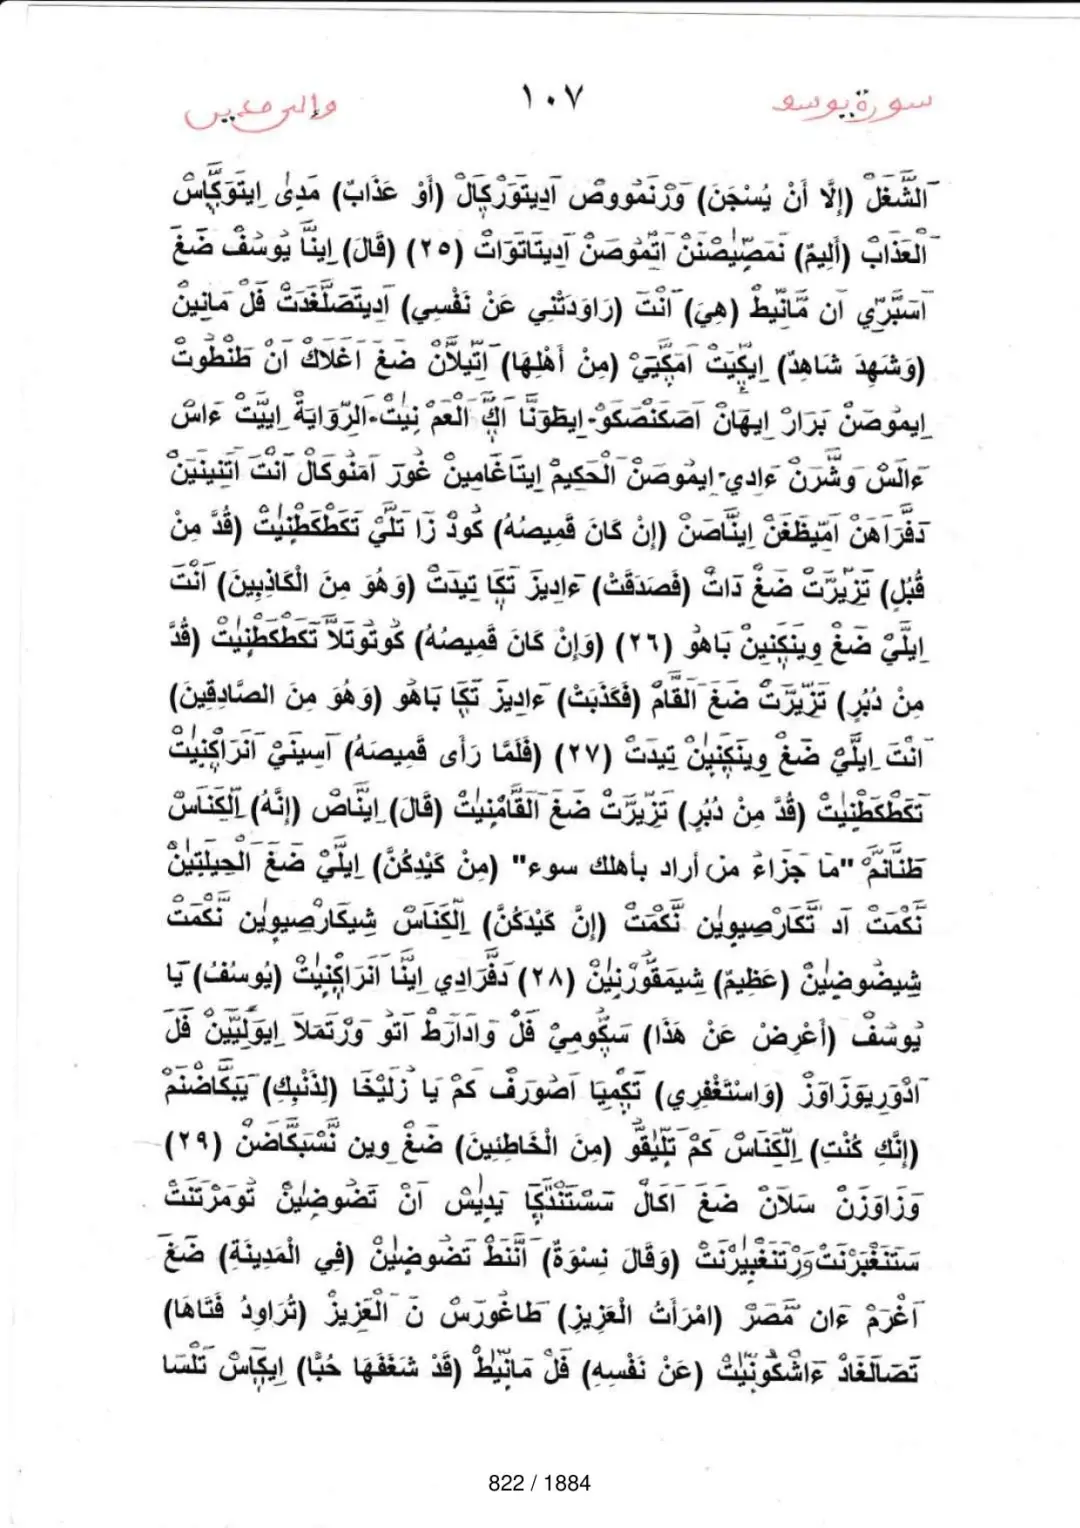 سورة يوسو ١٠٧
اَلشُّغَلْ (إِلَّا أَنْ يُسْجَنَ) وَرْنَمُووصْ اَدِيتَوَرْكَالْ (أَوْ عَذَابٌ) مَدىٰ اِيتَوَكَّاسْ
اَلْعَذَابْ (أَلِيمٌ) نَمَصِّيْصْنَنْ اَتْمُوصَنْ اَدِيتَاتَوَاتْ (٢٥) (قَالَ) اِينَّا يُوسُفْ ضَغْ
اَسَبَّرِّي اَن مَّانِّيطْ (هِيَ) اَنْتَ (رَاوَدَتْنِي عَنْ نَفْسِي) اَدِيتَصَلَّغَدَتْ فَلْ مَانِينْ
(وَشَهِدَ شَاهِدٌ) اِيكِّيَتْ اَمَكِّيَيْ (مِنْ أَهْلِهَا) اَتِّيلَانْ ضَغَ اَغْلَاكْ اَنْ طَنْطُوتْ
اِيمُوصَنْ بَرَارْ اِيهَانْ اَصَكَنْصَكَوْ-اِيطَوَنَّا اَكَّ الْعَمْ نِيتْ-اَلرِّوَايَةْ اِييَّتْ ءَاسْ
ءَالَسْ وَشَّرَنْ ءَادِي-اِيمُوصَنْ اَلْحَكِيمْ اِيتَاغَامِينْ غُورَ اَمَنُوكَالْ اَنْتَ اَتِّنِينِيَنْ
دَفَّرَاهَنْ اَمِّيظَغَنْ اِينَّاصَنْ (إِنْ كَانَ قَمِيصُهُ) كُودْ زَا تَلَّيْ تَكَطْكَطْنِيْتْ (قُدَّ مِنْ
قُبُلٍ) تَزِيرَّتْ ضَغْ دَاتْ (فَصَدَقَتْ) ءَادِيزَ تَكَا تِيدَتْ (وَهُوَ مِنَ الْكَاذِبِينَ) اَنْتَ
اِيلَّيْ ضَغْ وِينَكِنِينْ بَاهُو (٢٦) (وَإِنْ كَانَ قَمِيصُهُ) كُوتُوتَلَّا تَكَطْكَطْنِيْتْ (قُدَّ
مِنْ دُبُرٍ) تَزِيرَّتْ ضَغَ الْقَامْ (فَكَذَبَتْ) ءَادِيزَ تَكَا بَاهُو (وَهُوَ مِنَ الصَّادِقِينَ)
اَنْتَ اِيلَّيْ ضَغْ وِينَكِنِينْ تِيدَتْ (٢٧) (فَلَمَّا رَأَى قَمِيصَهُ) اَسِينَيْ اَنْرَاكِنِيْتْ
تَكَطْكَطْنِيْتْ (قُدَّ مِنْ دُبُرٍ) تَزِيرَّتْ ضَغَ الْقَامْنِيْتْ (قَالَ) اِينَّاصْ (إِنَّهُ) اِلْكَنَاسْ
طَنَّانَمْ "مَا جَزَاءُ من أراد بأهلك سوء" (مِنْ كَيْدِكُنَّ) اِيلَّيْ ضَغَ الْحِيلَتِيْنْ
نَّكْمَتْ اَد تَّكَارْصِيوِيْن نَّكْمَتْ (إِنَّ كَيْدَكُنَّ) اِلْكَنَاسْ شِيكَارْصِيوِيْن نَّكْمَتْ
شِيضُوضِيْنْ (عَظِيمٌ) شِيمَقُّورْنِيْنْ (٢٨) دَفَّرَادِي اِينَّا اَنْرَاكِنِيْتْ (يُوسُفُ) يَا
يُوسُفْ (أَعْرِضْ عَنْ هَذَا) سَكُّومِيْ فَلْ وَادَارَطْ اَتْو وَرْتَمَلَا اِيوَلِيَّيْنْ فَلْ
اَدْوَرِيوَزَاوَزْ (وَاسْتَغْفِرِي) تَكِّمِيَا اَصُورَفْ كَمْ يَا زُلَيْخَا (لِذَنْبِكِ) يَبَكَّاضْنَمْ
(إِنَّكِ كُنْتِ) اِلْكَنَاسْ كَمْ تَلِّيْقُو (مِنَ الْخَاطِئِينَ) ضَغْ وِين نَّسْبَكَّاضَنْ (٢٩)
وَزَاوَزَنْ سَلَانْ ضَغَ اَكَالْ سَسْتَنْدَّكِيَا يَدِيْسْ اَنْ تَضُوضِيْنْ تُومَرْتَنَتْ
سَتَنَغْبَرْنَتْ وَرْتَنَغْبِيرْنَتْ (وَقَالَ نِسْوَةٌ) اَنَّنَطْ تَضُوضِيْنْ (فِي الْمَدِينَةِ) ضَغَ
اَغْرَمْ ءَان مَّصَرْ (امْرَأَتُ الْعَزِيزِ) طَاغُورَسْ نَ الْعَزِيزْ (تُرَاوِدُ فَتَاهَا)
تَصَالَغَادْ ءَاشْكُونِّيْتْ (عَنْ نَفْسِهِ) فَلْ مَانِّيْطْ (قَدْ شَغَفَهَا حُبًّا) اِيكَّاسْ تَلْسَا
822 / 1884